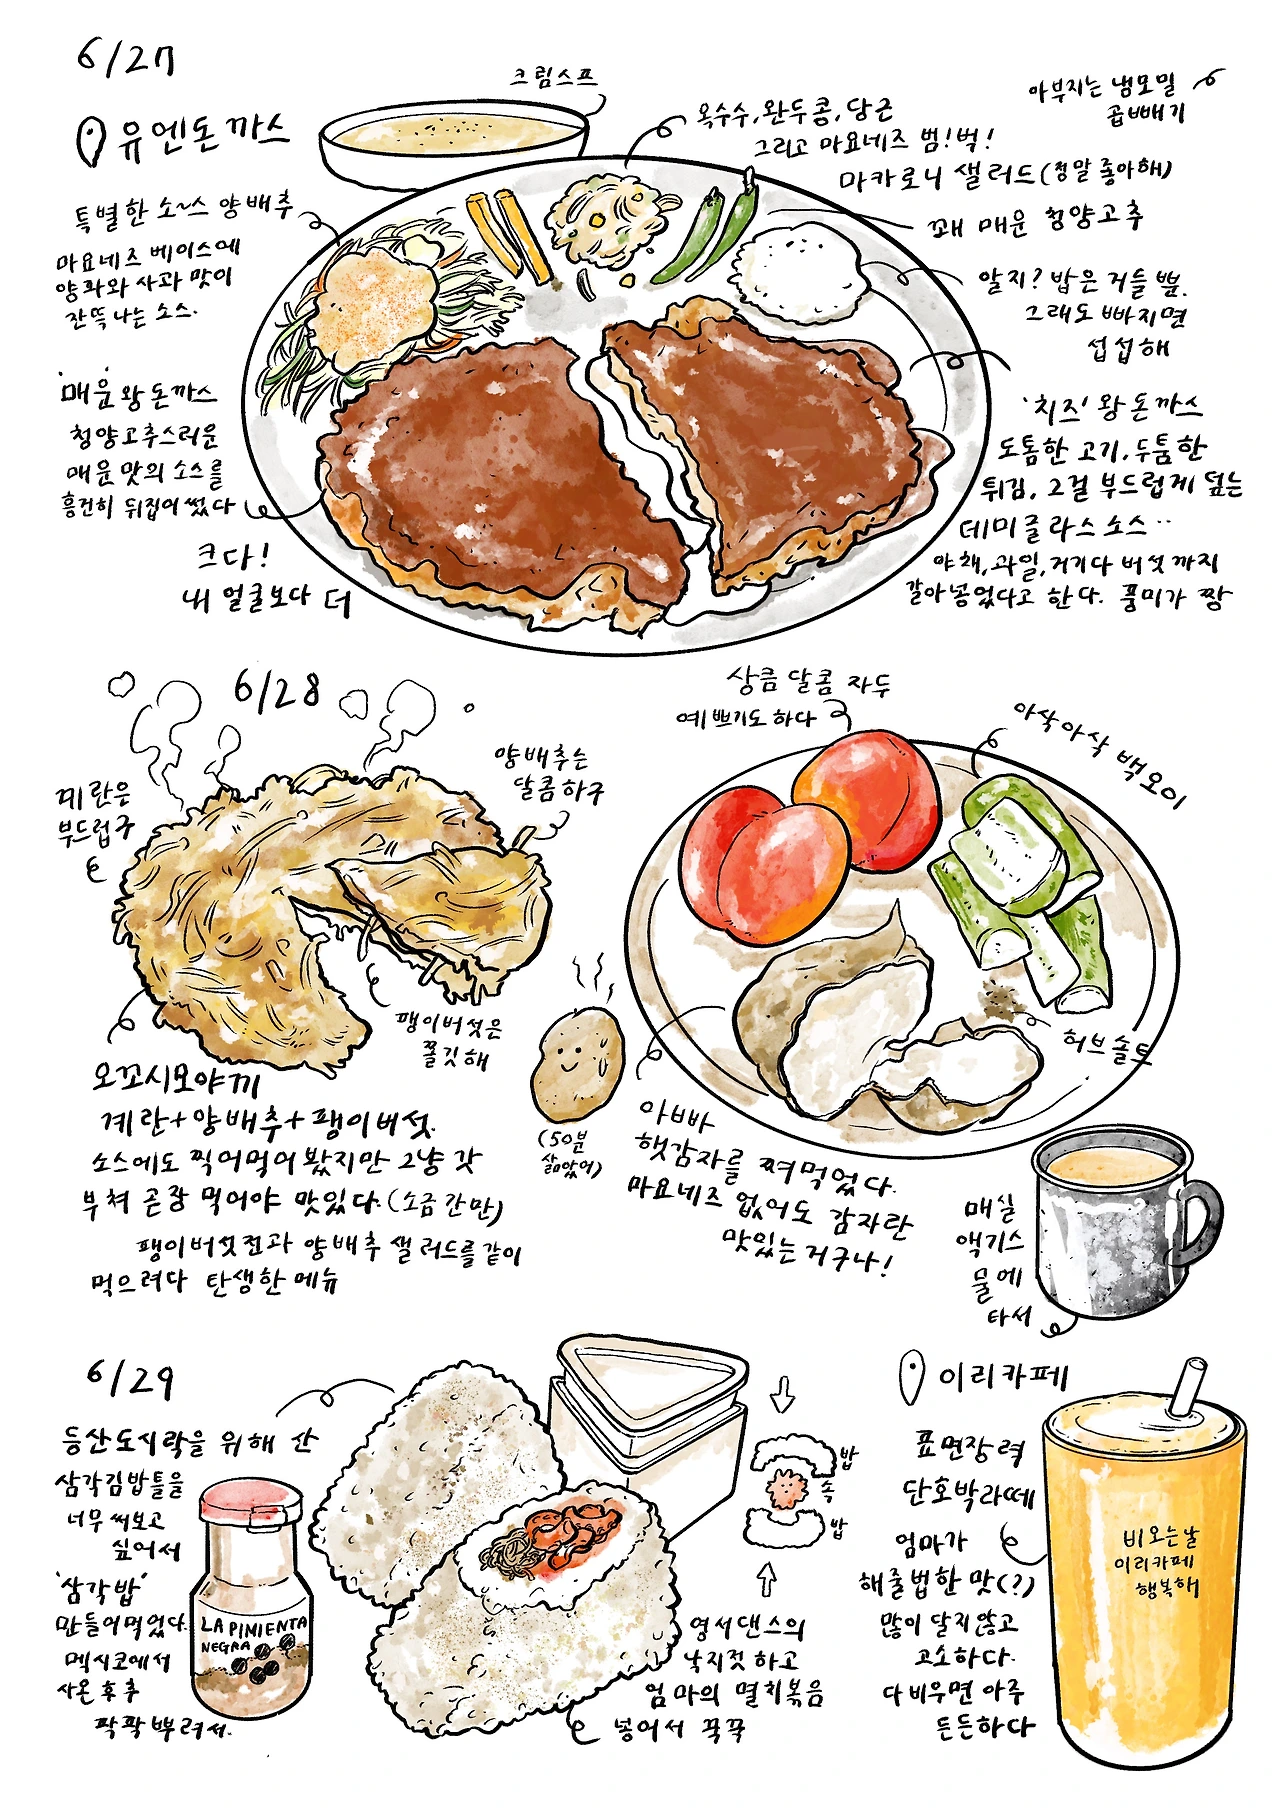 6/27
유엔돈까스
크림스프
옥수수,완두콩,당근
그리고 마요네즈 범!벅!
마카로니 샐러드(정말 좋아해)
아부지는 냉모밀
곱빼기
특별한 소~스 양배추
마요네즈 베이스에
양파와 사과 맛이
잔뜩 나는 소스.
꽤 매운 청양고추
알지? 밥은 거들 뿐.
그래도 빠지면
섭섭해
'매운'왕돈까스
청양고추스러운
매운맛의 소스를
흥건히 뒤집어 썼다
크다!
내 얼굴보다 더
'치즈' 왕돈까스
도톰한 고기, 두툼한
튀김, 그걸 부드럽게 덮는
데미글라스소스..
야채,과일,거기다 버섯까지
갈아넣었다고 한다. 풍미가 짱
6/28
계란은
부드럽구
양배추는
달콤하구
팽이버섯은
쫄깃해
오꼬시모야끼
계란+양배추+팽이버섯.
소스에도 찍어먹어 봤지만 그냥 갓
부쳐 곧장 먹어야 맛있다.(소금 간만)
팽이버섯전과 양배추 샐러드를 같이
먹으려다 탄생한 메뉴
상큼 달콤 자두
예쁘기도 하다
아삭아삭 백오이
허브솔트
(50분
삶았어)
아빠가
햇감자를 쪄먹었다.
마요네즈 없어도 감자란
맛있는거구나!
매실
액기스
물에
타서
6/29
등산도시락을 위해 산
삼각김밥틀을
너무 써보고
싶어서
'삼각밥'
만들어먹었다.
멕시코에서
사온 후추
팍팍 뿌려서.
LA PIMIENTA
NEGRA
밥
속
밥
영서댄스의
낙지젓 하고
엄마의 멸치볶음
넣어서 꾹꾹
이리카페
표면장력
단호박라떼
엄마가
해줄법한 맛(?)
많이 달지않고
고소하다.
다 비우면 아주
든든하다
비오는날
이리카페
행복해